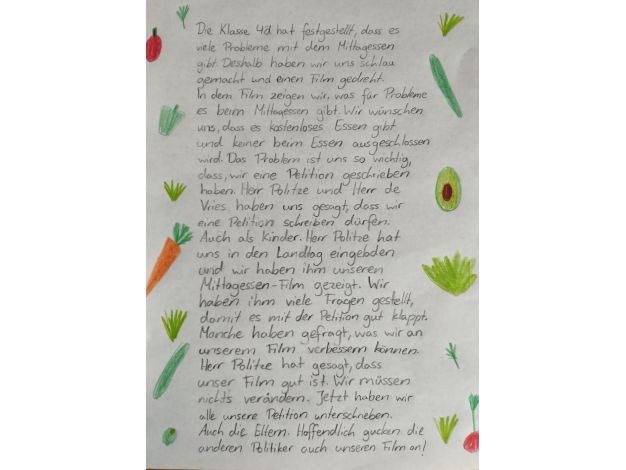 Die Klasse 4d hat festgestellt, dass es
viele Probleme mit dem Mittagessen
gibt. Deshalb haben wir uns schlau
gemacht und einen Film gedreht.
In dem Film zeigen wir, was für Probleme
es beim Mittagessen gibt. Wir wünschen
uns, dass es kostenloses Essen gibt
und keiner beim Essen ausgeschlossen
wird. Das Problem ist uns so wichtig,
dass, wir eine Petition geschrieben
haben. Herr Politze und Herr de
Vries haben uns gesagt, dass wir
eine Petition schreiben dürfen.
Auch als Kinder. Herr Politze hat
uns in den Landtag eingebden
und wir haben ihm unseren
Mittagessen-Film gezeigt. Wir
haben ihm viele Fragen gestellt,
damit es mit der Petition gut klappt.
Manche haben gefragt, was wir an
unserem Film verbessern können.
Herr Politze hat gesagt, dass
unser Film gut ist. Wir müssen
nichts verändern. Jetzt haben wir
alle unsere Petition unterschrieben.
Auch die Eltern. Hoffendlich gucken die
anderen Politiker auch unseren Film an!